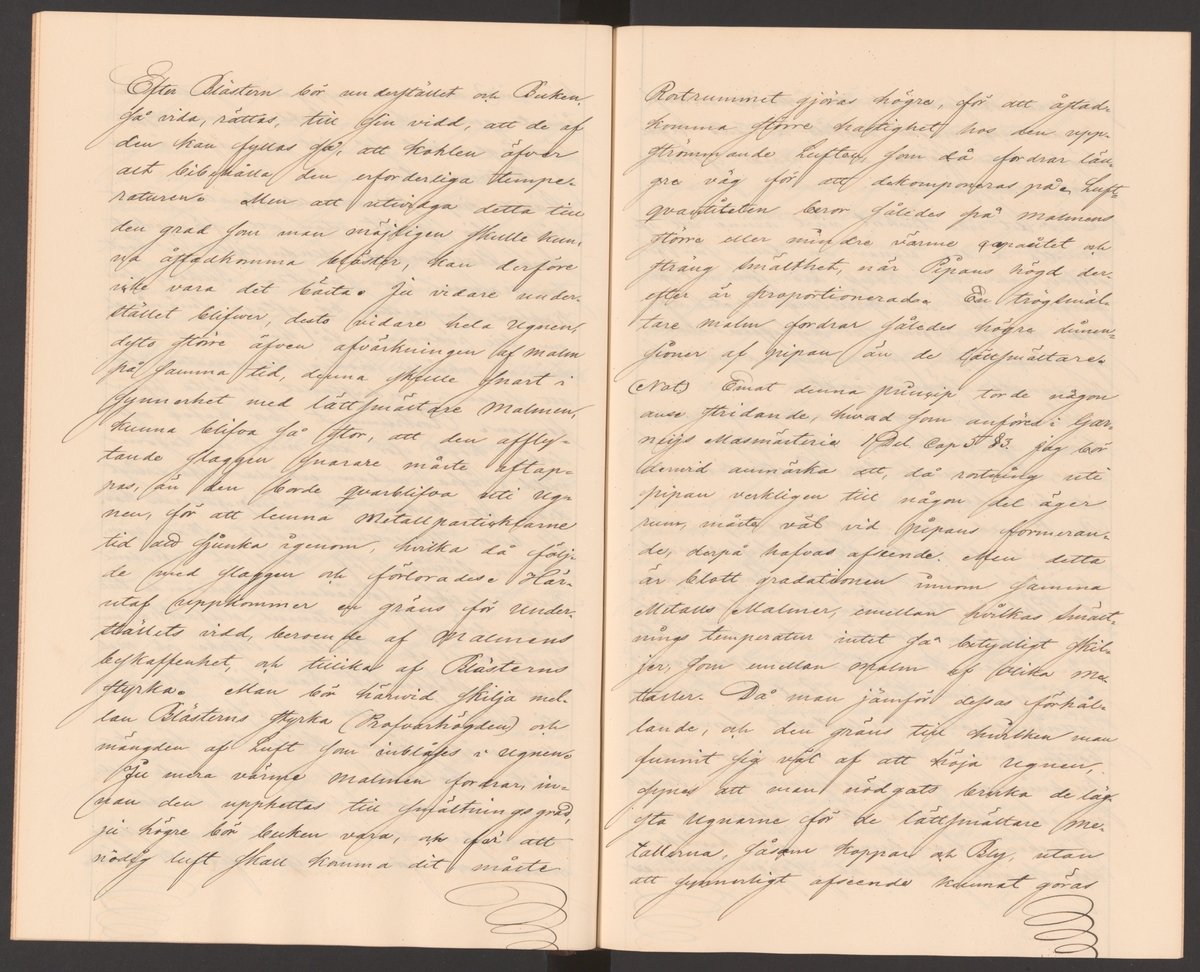 Efter Blästern bör understället och Buken
så vida, rättas, till sin vidd, att de af
den kan fyllas så, att kohlen äfver
alt bibehålla den erforderliga tempe-
raturen. Men att utvidga detta till
den grad som man möjligen skulle kun,
na åstadkomma bläster, kan derföre
icke vara det bästa. Ju vidare under-
stället blifwer, desto vidare hela ugnen,
desto större äfven afvärkningen af malm
på samma tid, denna skulle snart i
synnerhet med lättsmältare malmen,
kunna blifva så stor, att den affly-
tande slaggen snarare måste aftap-
pas, än den borde qvarblifva uti ug-
nen, för att lemna Metallpartiklarne
tid att sjunka igenom, hvilka då följ-
de med slaggen och förlorades. Här-
utaf uppkommer en gräns för under-
ställets vidd, beroende af Malmens
beskaffenhet, och tillika af Blästerns
styrka. Man bör härvid skilja mel-
lan Blästerns styrka (Profvarhögden) och
mängden af Luft som inblåses i ugnen.
Ju mera värme malmen fordrar, in-
nan den upphettas till smältningsgrad,
ju högre bör buken vara, och för att
nödig luft skall komma dit måste
Rostrummet gjöras högre, för att åstad-
komma större hastighet hos den upp-
strömmande Luften, som då fordrar län-
gre väg för att dekomponeras på. Luft-
qvantiteten beror således på malmens
större eller mindre värme capacitet och
sträng smälthet, när Pipans högd der-
efter är proportionerad. En trögsmäl-
tare malm fordrar således högre dimen-
sioner af pipan än de lättsmältare.
(Not) Emot denna princip torde någon
anse stridande, hwad som anföres i Gar-
neijs Masmästeria 1 Del Cap 5 § 3. jag bör
dervid anmärka att, då rostning uti
pipan verkligen till någon del äger
rum, måste väl vid pipans formeran-
de, derpå hafvas afseende. Men detta
är blott gradationen innom samma
Metalls Malmer, emellan hvilkas smält-
nings temperatur intet så betydligt skil-
jer, som emellan malm af olika me-
taller. Då man jämför dessas förhål-
lande, och den gräns till hwilken man
funnit sig väl af att höja ugnen,
synes att man nödgats bruka de läg-
sta ugnarne för de lättsmältare me-
tallerna, såsom koppar och Bly, utan
att synnerligt afseende kunnat göras